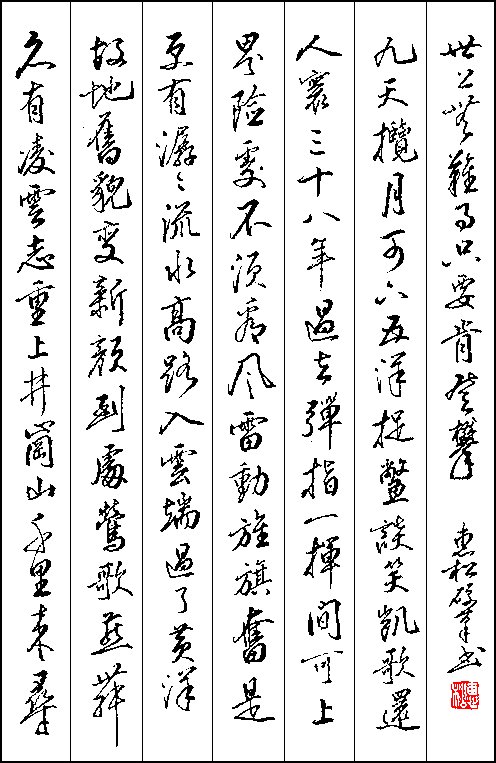 久有凌雲志重上井崗山千里来尋
故地舊貌变新顔到處鶯歌燕舞
更有潺々流水高路入雲端過了黄洋
界險處不須看风雷動旌旗奮是
人寰三十八年過去彈指一揮間可上
九天攬月可下五洋捉鱉談笑凱歌還
世上無難事只要肯登攀 惠松硬筆书